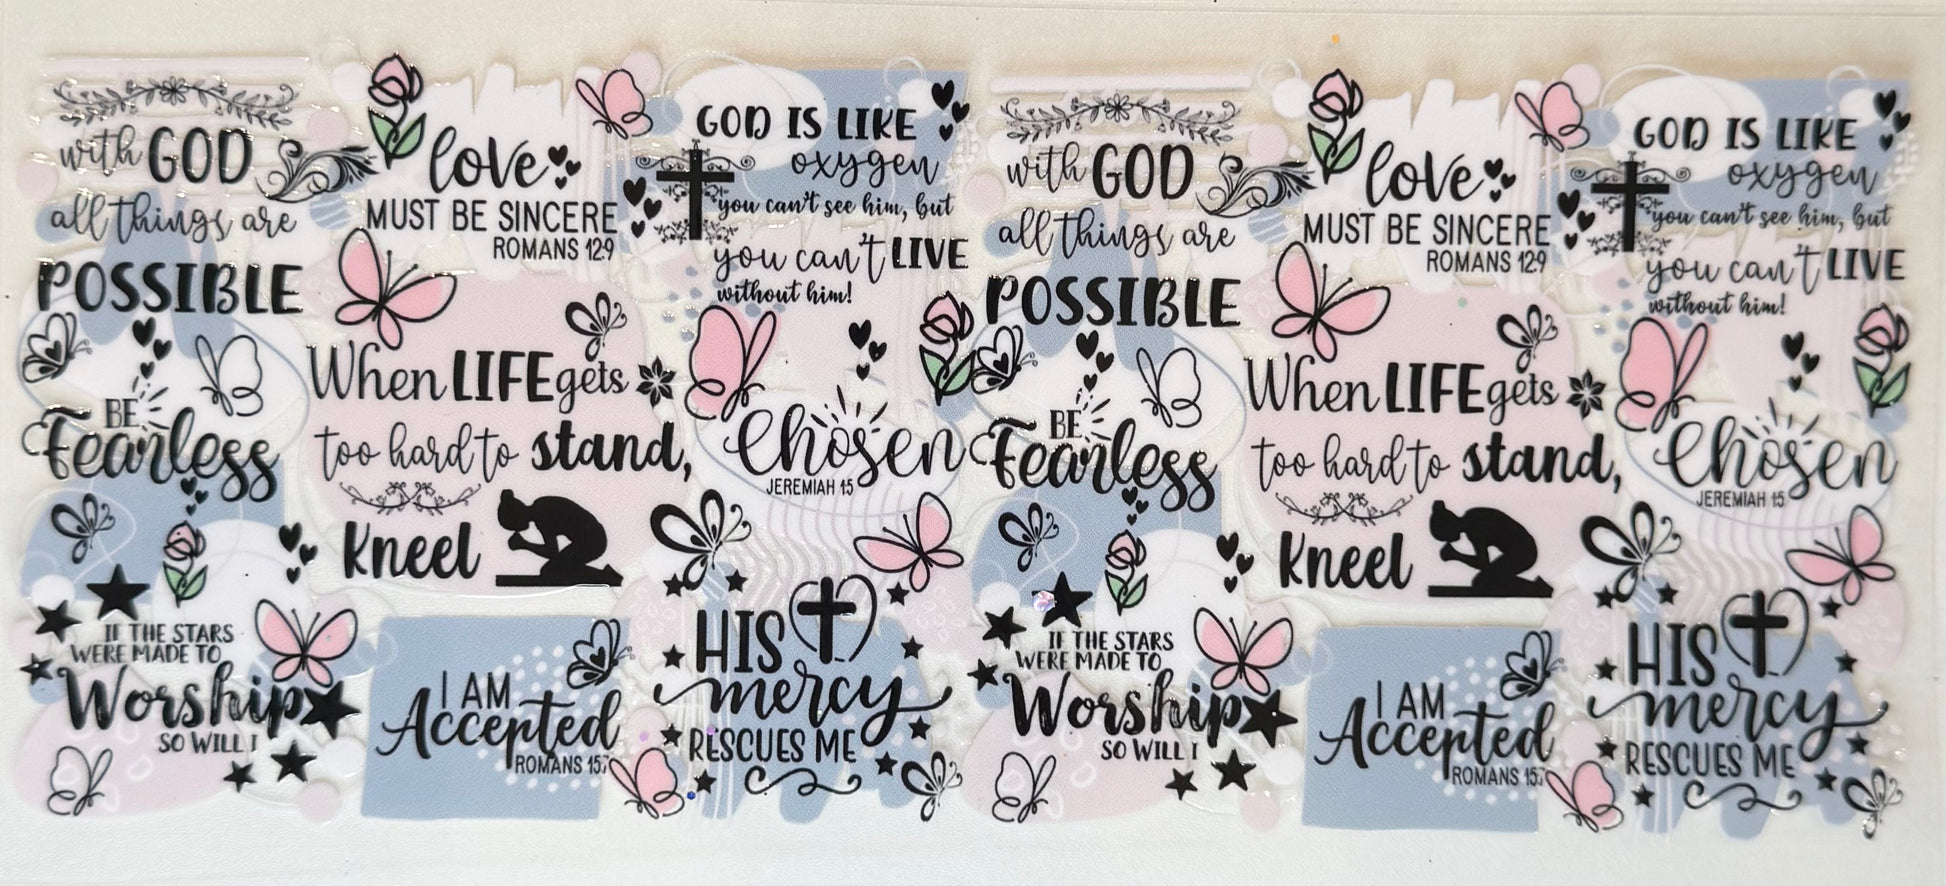 with GOD
all things are
POSSIBLE
love
MUST BE SINCERE
ROMANS 12:9
GOD IS LIKE
oxygen
you can't see him, but
you can't LIVE
without him!
BE
Fearless
When LIFE gets
too hard to stand,
kneel
Chosen
JEREMIAH 1:5
IF THE STARS
WERE MADE TO
Worship
SO WILL I
I AM
Accepted
ROMANS 15:7
HIS
mercy
RESCUES ME
with GOD
all things are
POSSIBLE
love
MUST BE SINCERE
ROMANS 12:9
GOD IS LIKE
oxygen
you can't see him, but
you can't LIVE
without him!
BE
Fearless
When LIFE gets
too hard to stand,
kneel
Chosen
JEREMIAH 1:5
IF THE STARS
WERE MADE TO
Worship
SO WILL I
I AM
Accepted
ROMANS 15:7
HIS
mercy
RESCUES ME